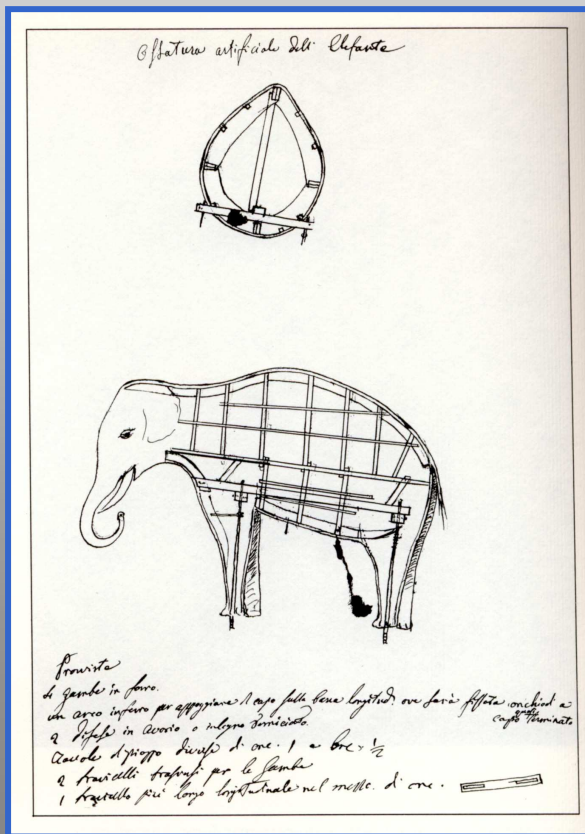 Ossatura artificiale dell' Elefante
Provvista
4 gambe in ferro.
un arco in ferro per appoggiare il capo sulla barra longitud. ove sarà fissata con chiodi a
capo terminato
2 difese in avorio o in legno verniciato.
tavole di pioppo diverse di onc. 1 a onc. ½
2 travicelli trasversi per le gambe
1 travicello più longo longitudinale nel mezzo. di onc.